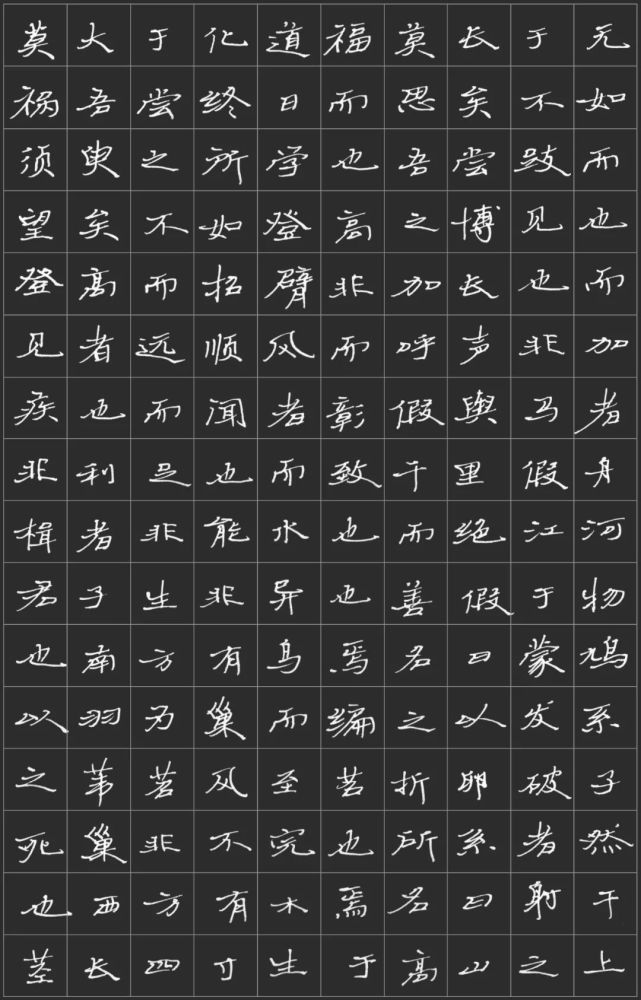 莫大于化道福莫长于无
祸吾尝终日而思矣不如
须臾之所学也吾尝跂而
望矣不如登高之博见也
登高而招臂非加长也而
见者远顺风而呼声非加
疾也而闻者彰假舆马者
非利足也而致千里假舟
楫者非能水也而绝江河
君子生非异也善假于物
也南方有鸟焉名曰蒙鸠
以羽为巢而编之以发系
之苇苕风至苕折卵破子
死巢非不完也所系者然
也西方有木焉名曰射干
茎长四寸生于高山之上